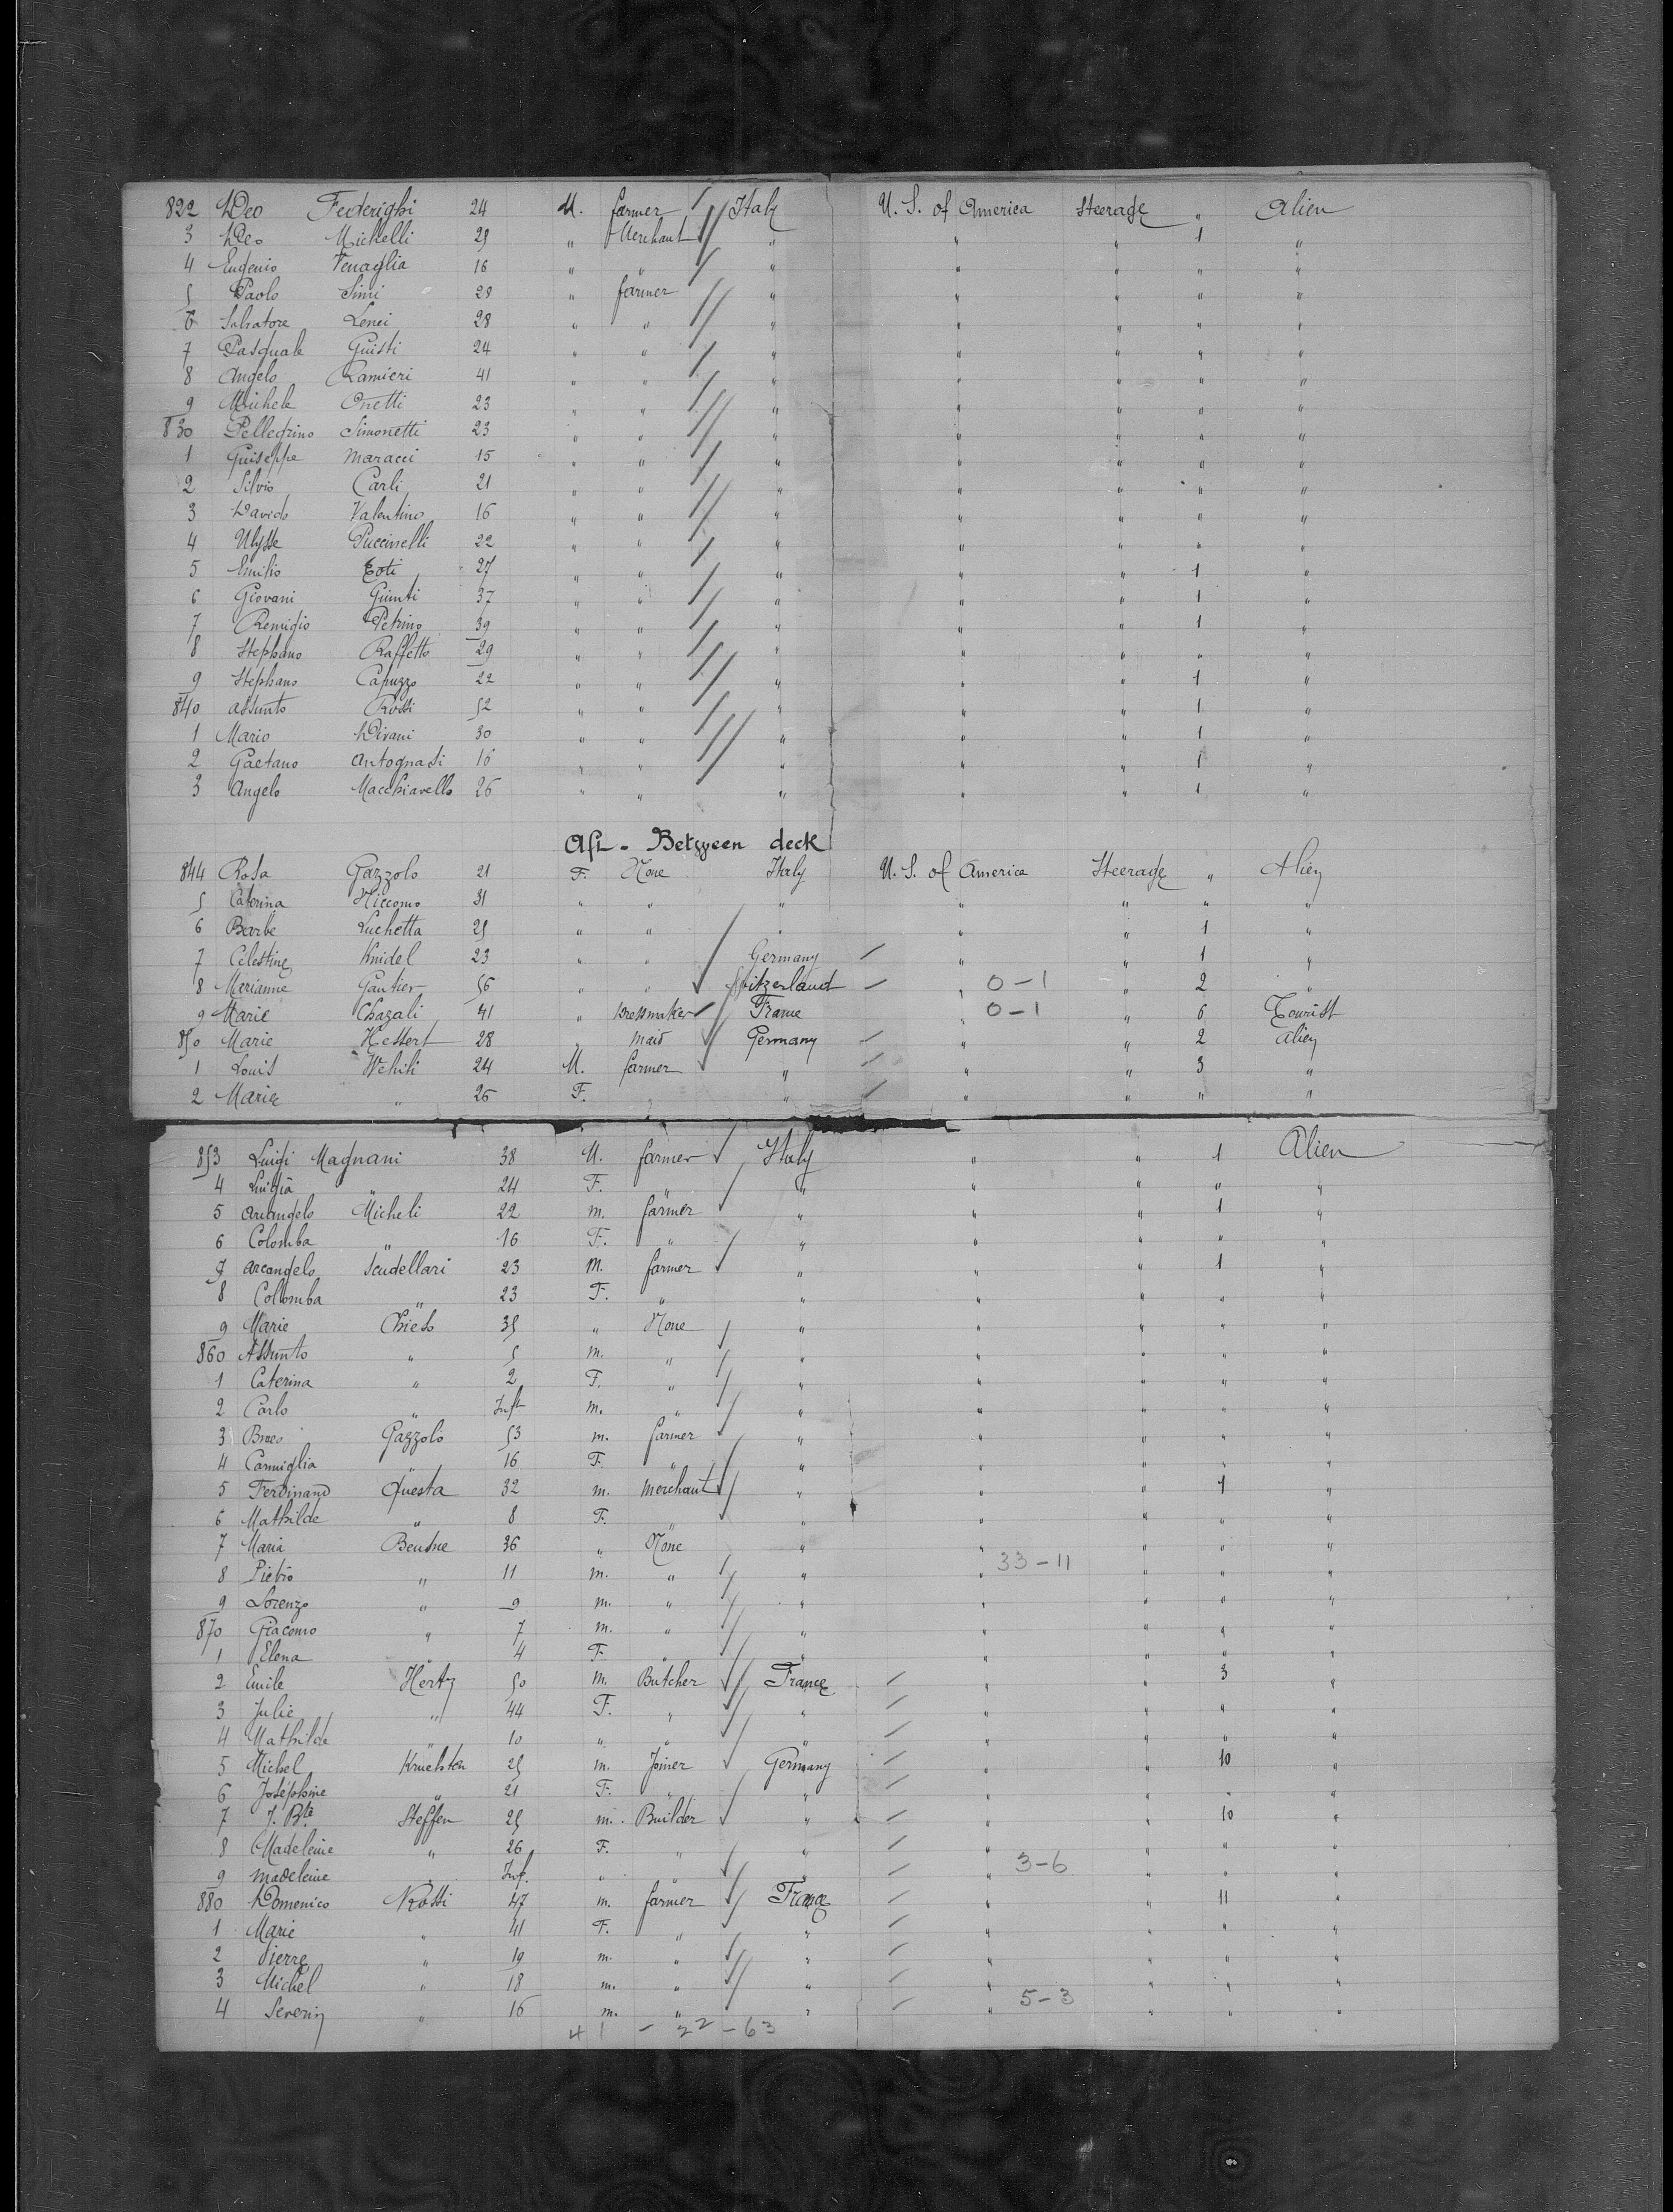 822 Deo Federighi 24 M. farmer Italy U. S. of America Steerage " Alien
3 Deo Michelli 25 " Merchant " " " 1 "
4 Eugenio Venaglia 16 " " " " " " "
5 Paolo Simi 28 " farmer " " " " "
6 Salvatore Lenci 28 " " " " " " "
7 Pasquale Guisti 24 " " " " " " "
8 Angelo Ramieri 41 " " " " " " "
9 Michele Onetti 23 " " " " " " "
830 Pellegrino Simonetti 23 " " " " " " "
1 Guiseppe Maracci 15 " " " " " " "
2 Silvio Carli 21 " " " " " " "
3 Davido Valentino 16 " " " " " " "
4 Ulysse Puccinelli 22 " " " " " " "
5 Emilio Toti 27 " " " " " 1 "
6 Giovani Giunti 37 " " " " " 1 "
7 Remigio Petrino 39 " " " " " 1 "
8 Stephano Raffetto 29 " " " " " " "
9 Stephano Capuzzo 22 " " " " " 1 "
840 Assunto Rossi 52 " " " " " 1 "
1 Mario Divani 30 " " " " " 1 "
2 Gaetano Antognasi 16 " " " " " 1 "
3 Angelo Macchiavello 26 " " " " " 1 "
Aft - Between deck
844 Rosa Gazzolo 21 F. None Italy U. S. of America Steerage " Alien
5 Caterina Niccomo 31 " " " " " " "
6 Barbe Luchetta 25 " " " " " 1 "
7 Celestine Knidel 23 " " Germany " " 1 "
8 Marianne Gautier 56 " " Switzerland " 0-1 " 2 "
9 Marie Chazali 41 " Dressmaker France " 0-1 " 6 Tourist
850 Marie Hessert 28 " Maid Germany " " 2 Alien
1 Louis Wehili 24 M. farmer " " " 3 "
2 Marie " 26 F. " " " " " "
853 Luigi Magnani 38 M. farmer Italy " " 1 Alien
4 Luigia " 24 F. " " " " " "
5 Arcangelo Micheli 22 m. farmer " " " 1 "
6 Colomba " 16 F. " " " " " "
7 Arcangelo Scudellari 23 M. farmer " " " 1 "
8 Colomba " 23 F. " " " " " "
9 Marie Chieso 35 " None " " " " "
860 Assunto " 5 m. " " " " " "
1 Caterina " 2 F. " " " " " "
2 Carlo " Inft m. " " " " " "
3 Gazzolo 53 m. farmer " " " " "
4 Carmiglia " 16 F. " " " " " "
5 Ferdinand Questa 32 m. Merchant " " " 1 "
6 Mathilde " 8 F. " " " " " "
7 Maria 36 " None " " " " "
8 Pietro " 11 m. " " " 33-11 " " "
9 Lorenzo " 9 m. " " " " " "
870 Giacomo " 7 m. " " " " " "
1 Elena " 4 F. " " " " " "
2 Emile Hertz 50 m. Butcher France " " 3 "
3 Julie " 44 F. " " " " " "
4 Mathilde " 10 " " " " " " "
5 Michel Kruchten 25 m. Joiner Germany " " 10 "
6 Joséphine " 21 F. " " " " " "
7 J. Bte Steffen 25 m. Builder " " " 10 "
8 Madeleine " 26 F. " " " " " "
9 Madeleine " Inf. " " " " 3-6 " " "
880 Domenico Rossi 47 m. farmer France " " 11 "
1 Marie " 41 F. " " " " " "
2 Pierre " 19 m. " " " " " "
3 Michel " 18 m. " " " " " "
4 Severin " 16 m. " " " 5-3 " " "
41 - 22 - 63